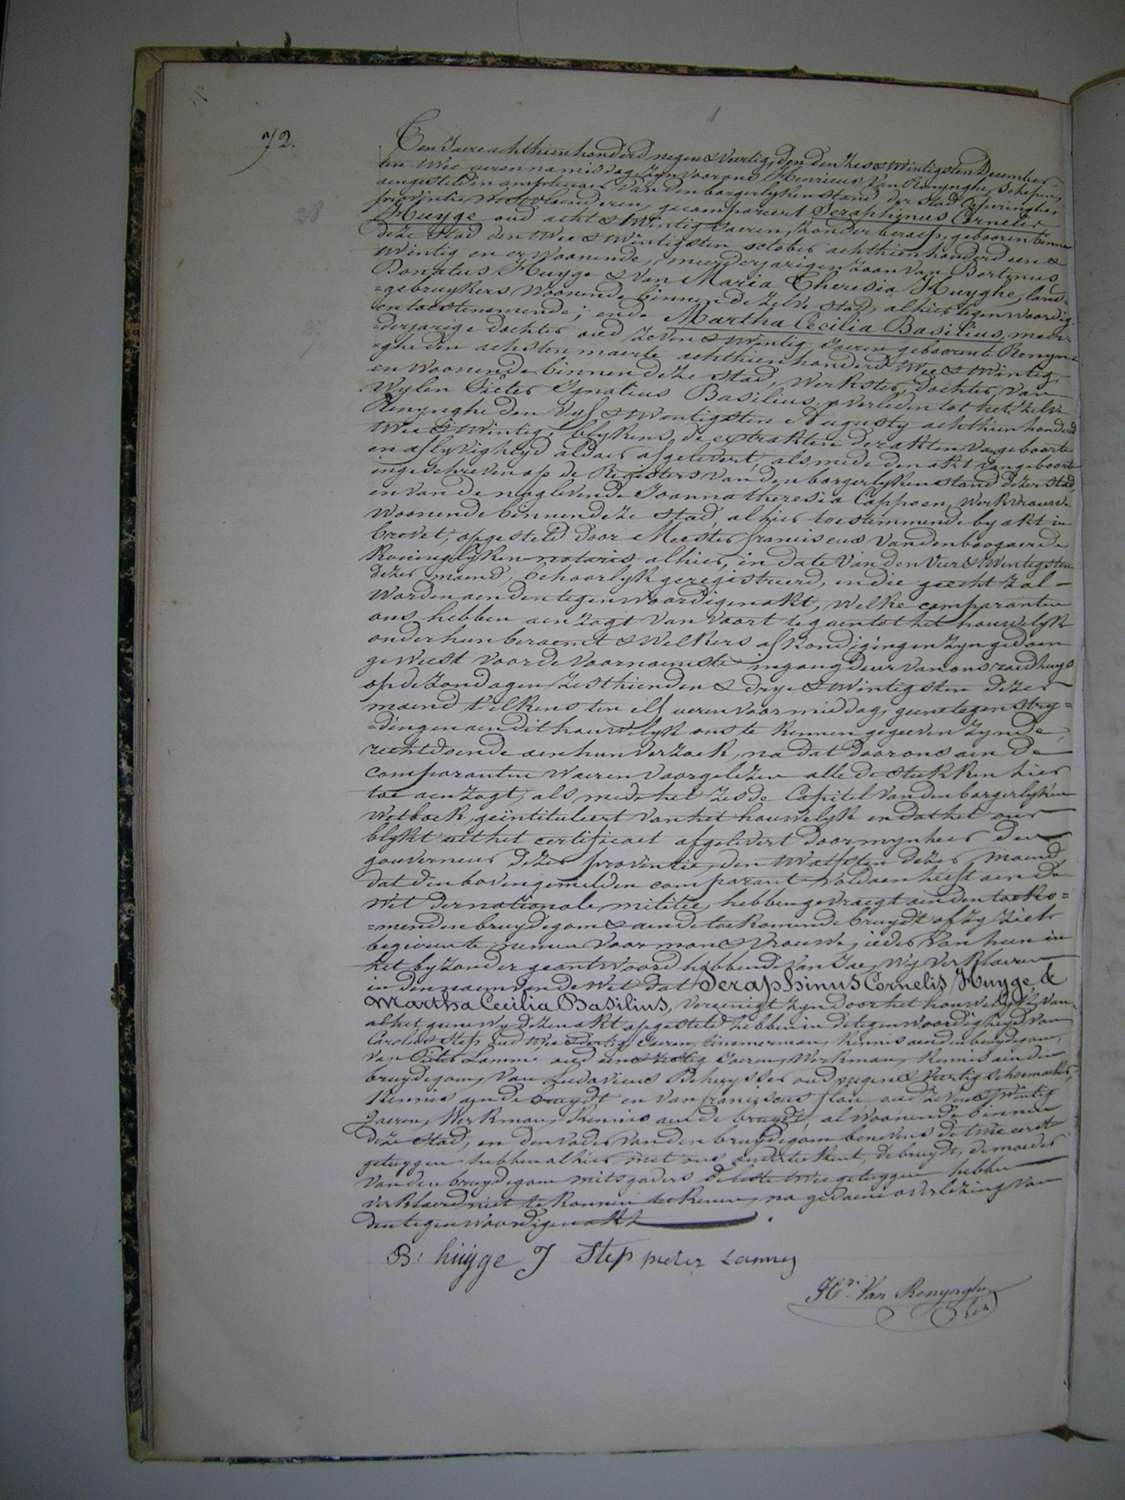 72.
Een Jaere achthien honderd negen & veertig, den den zes & twintigsten December
ten twee ueren namiddag zyn voor ons Henricus Van Renynghe, Schepen,
aengestelden amptenaer van den borgerlyken stand der stad Poperinghe,
provintie Westvlaenderen, gecompareert Seraphinus Cornelis
Huyge oud acht & twintig Jaeren, zonder beroep, gebooren binnen
deze stad den twee & twintigsten october achthien honderd een &
twintig en er woonende, meerderjarigen zoon van Bertinus
Donatus Huyge & van Maria Theresia Huyghe, land-
=gebruykers woonende binnen de zelve stad, alhier tegenwoordig
en toestemmende; ende Martha Cecilia Basilius, meer-
=derjarige dochter oud zeven & twintig Jaeren geboren te Renyn-
=ghe den achsten maerte achthien honderd twee & twintig
en woonende binnen deze stad, werkster, dochter van
wylen Pieter Ignatius Basilius, overleden tot het zelve
Renynghe den vyf & twintigsten Augusty achthien honderd
twee & twintig, blykens, de extrakten der akten van geboorte
en aflyvigheyd aldaer afgelevert, als mede den akt van geboorte
ingeschreven op de Registers van den borgerlyken stand dezer stad
en van de nog levende Joanna theresia Cappoen, werkvrouw
woonende binnen deze stad, alhier toestemmende by akt in
brevet, opgesteld door Meester franciscus Vandenboogaerde
Koninglyken notaris, alhier, in date van den vier & twintigsten
dezer maend, behoorlyk geregistreerd, en die gehecht zal
worden aen den tegenwoordigen akt, welke comparanten
ons hebben aenzogt van voort te gaen tot het houwelyk
onder hun beraemt & welkers afkondigingen zyn gedaen
geweest voor de voornaemste ingang deur van ons raedhuys
op de Zondagen zesthienden & drye & twintigsten dezer
maend telkens ten elf ueren voormiddag, geene tegenstry-
=dingen aen dit houwelyk ons te kennen gegeven zynde,
rechtdoende aen hun verzoek, na dat door ons aen de
comparanten waeren voorgelezen alle de stukken hier
toe aenzogt, als mede het zesde Capitel van den borgerlyken
wetboek geïntituleert van het houwelyk en dat het ons
blykt uit het certificaet afgelevert door mynheer den
gouverneur dezer provintie, den twaelfsten dezer maend,
dat den bovengemelden comparant voldaen heeft aen de
wet der nationale militie, hebben gevraegt aen den toeko-
=menden bruydegom & aen de toekomende bruydt of zy zich
begeeren te nemen voor man & vrouwe, ieder van hun in
het byzonder geantwoord hebbende van Jae, wy verklaeren
in den naem van de wet dat Seraphinus Cornelis Huyge &
Martha Cecilia Basilius, vereenigt zyn door het houwelyk, van
al het gene wy dezen akt opgesteld hebben in de tegenwoordigheyd van
Carolus Step oud twee & dertig Jaeren, timmerman, kennis aen den bruydegom,
van Pieter Lamme oud een & zestig Jaeren, werkman, kennis aen den
bruydegom, van Ludovicus Behuysser oud negen & veertig schoenmaker,
kennis aen de bruydt en van franciscus floie oud zeven & twintig
Jaeren, werkman, kennis aen de bruydt, al woonende binnen
deze stad, en den vader van den bruydegom benevens de twee eerste
getuygen hebben alhier met ons onderteekent, de bruydt, de moeder
van den bruydegom mitsgaders de leste twee getuygen hebben
verklaerd niet te konnen teekenen, na gedaene overlezing van
den tegenwoordigen akt.
B: huyge J Step pieter Lamme
Hri. Van Renynghe